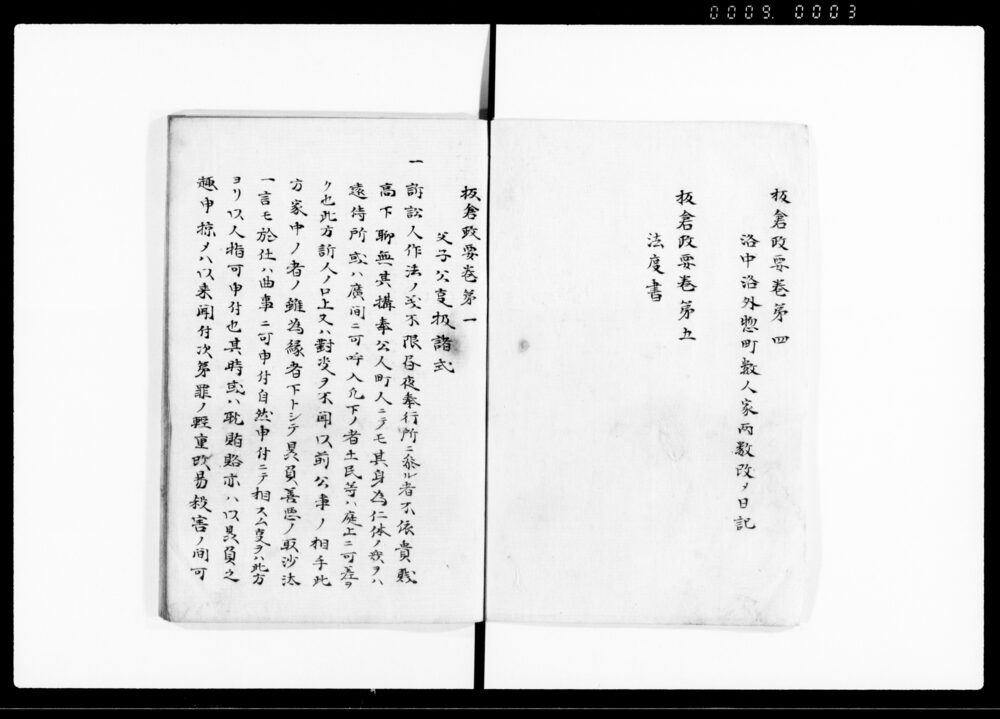 0009. 0003
板倉政要巻第四
洛中洛外惣町数人家両数改メ日記
板倉政要巻第五
法度書
板倉政要巻第一
父子公事扱諸式
一 訴訟人作法ノ事不限昼夜奉行所ニ参ル者不依貴賤
高下聊無其搆奉公人町人ニテモ其身為仁体ノ族ヲハ
遠侍所或ハ廣間ニ可呼入凡下ノ者土民等ハ庭上ニ可差ヲ
ク也此方訴人ノ口上又ハ對决ヲ不聞以前公事ノ相手此
方家中ノ者ノ雖為縁者下トシテ贔負善悪ノ取沙汰
一言モ於仕ハ曲事ニ可申付自然申付ニテ相スム事ヲハ此方
ヨリ以人指可申付也其時或ハ耽賄賂亦ハ以贔負之
趣申掠メハ以来聞付次第罪ノ軽重改易殺害ノ間可